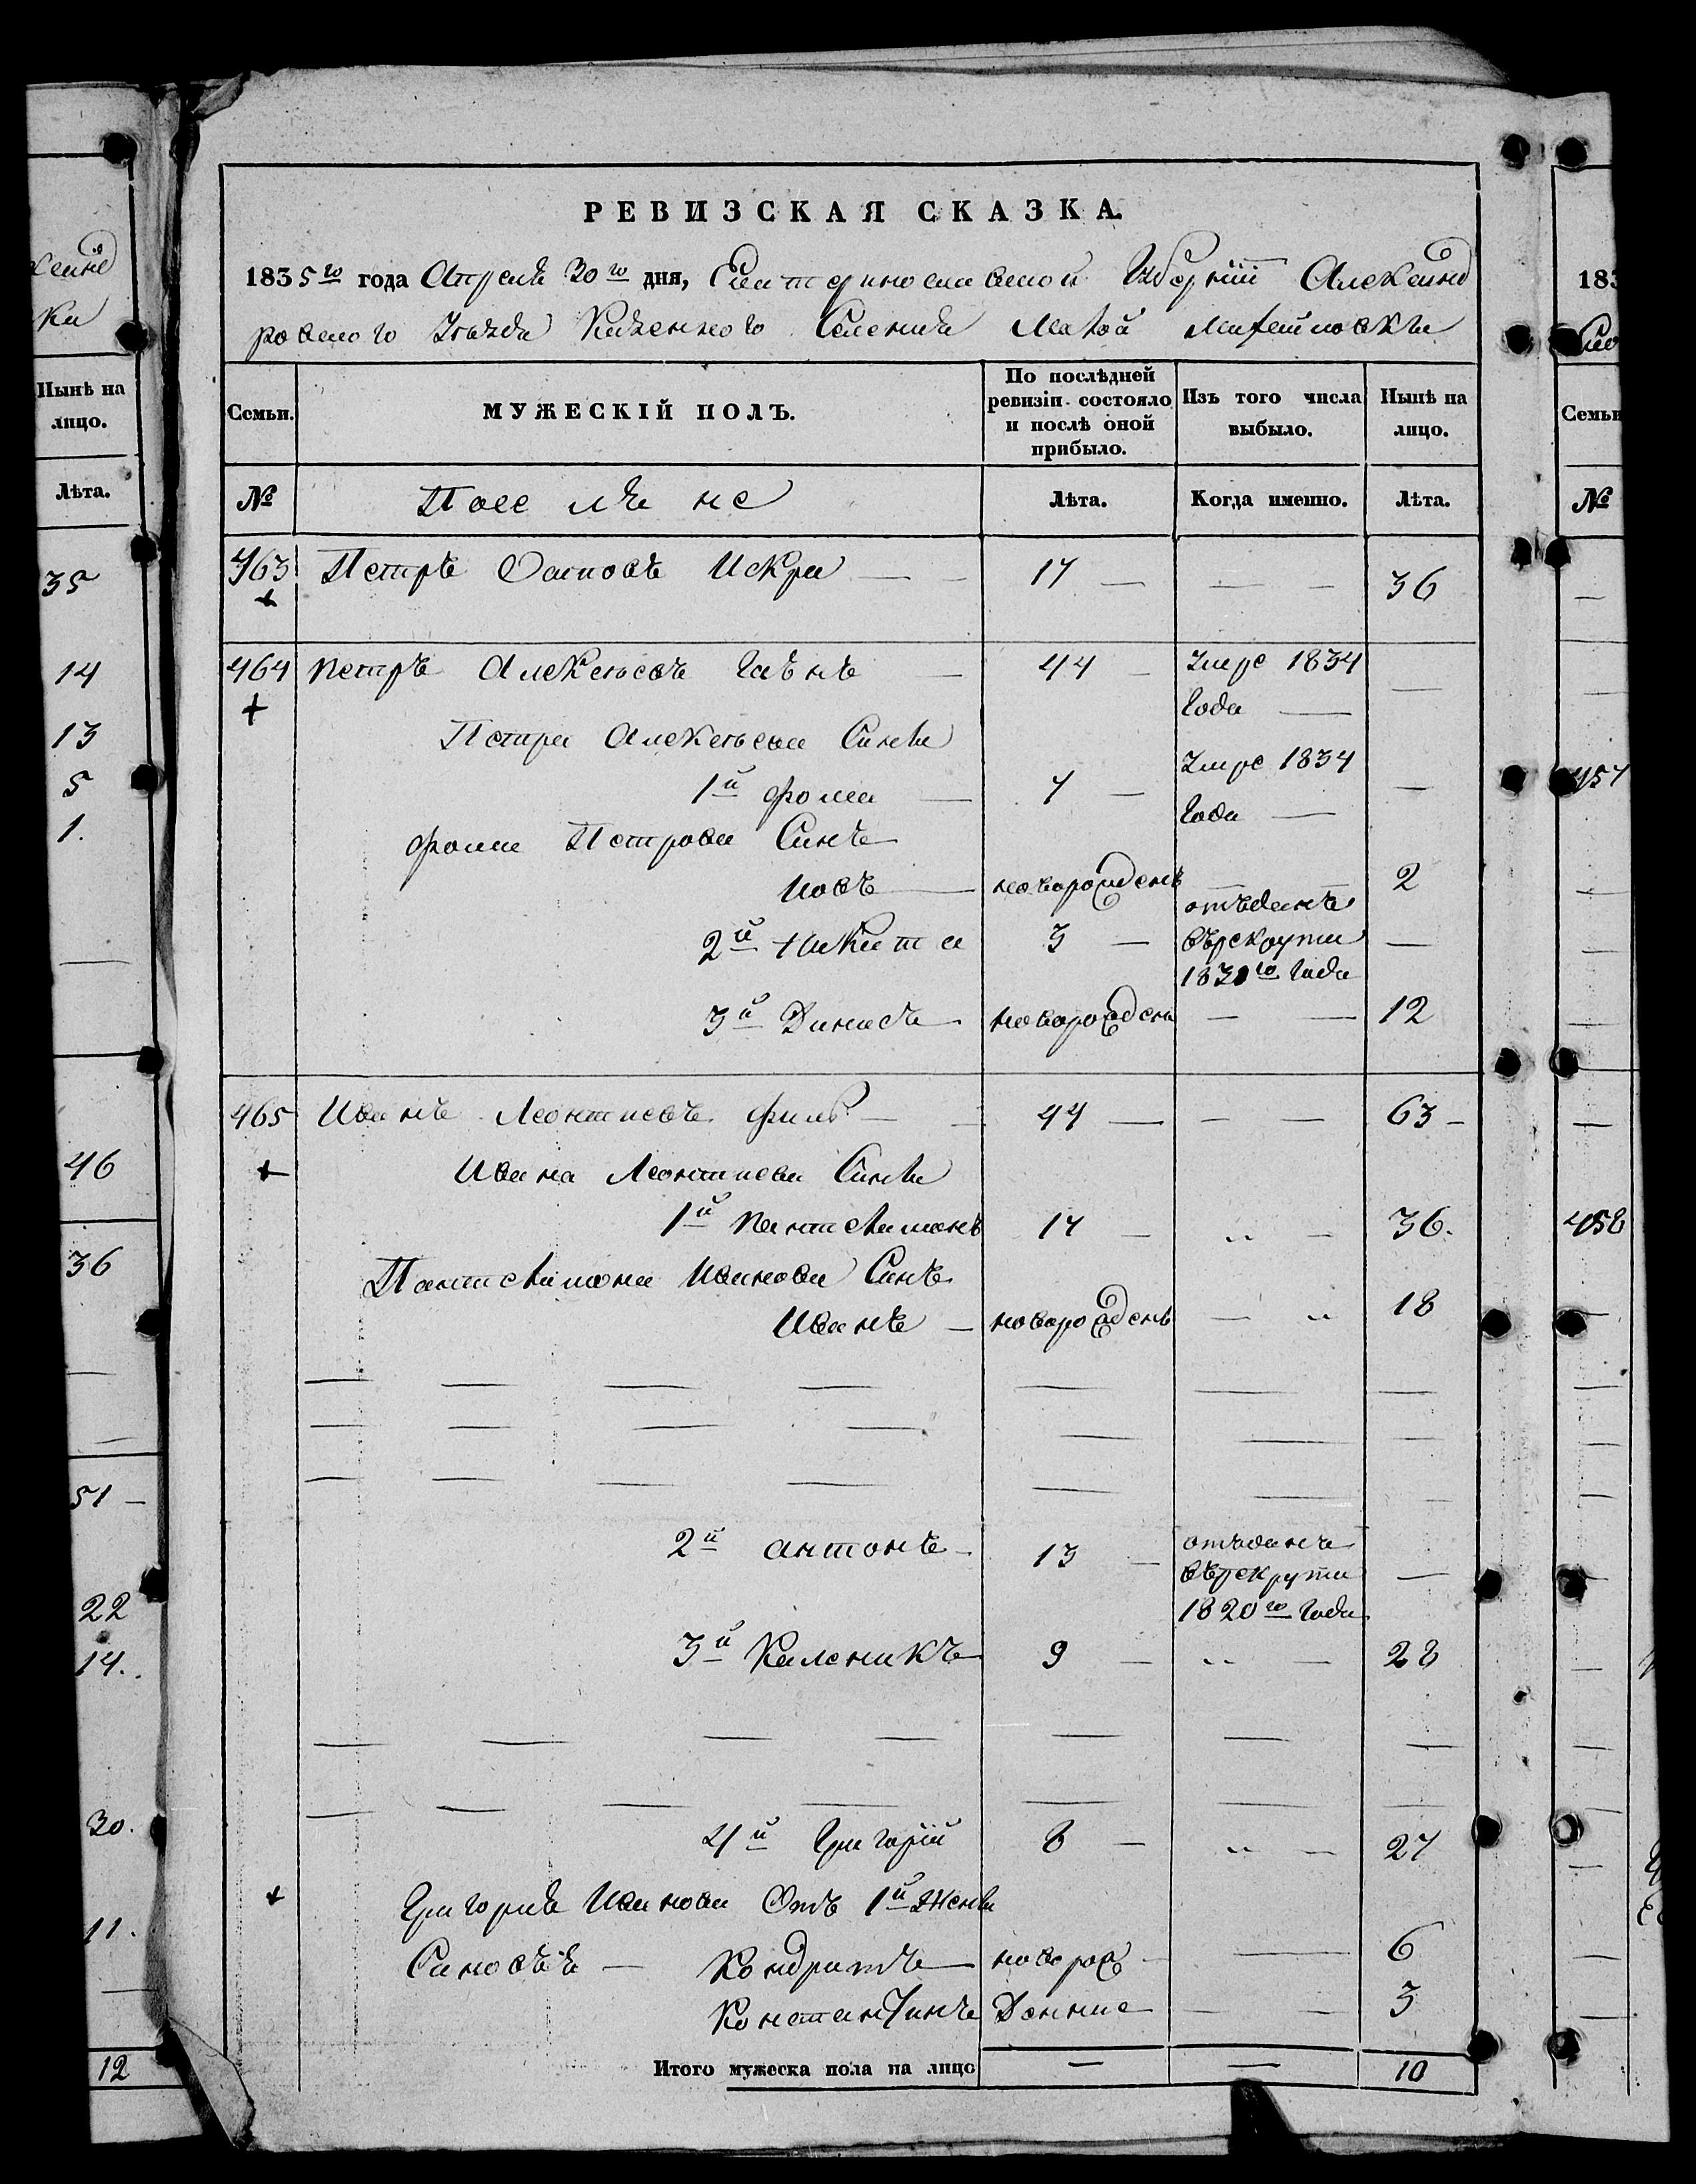 РЕВИЗСКАЯ СКАЗКА.
1835го года Апреля 30го дня, Екатеринославской Губернiи Александ
ровского Уезда Казенного Селения Малой Михайловки
Семьи.
МУЖЕСКIЙ ПОЛЪ.
По послѣдней ревизiи состояло и послѣ оной прибыло.
Изъ того числа выбыло.
Нынѣ на лицо.
№
Лѣта.
Когда именно.
Лѣта.
463 Петръ Осиповъ Искра — 17 — — — 36
464 Петръ Алексѣевъ — 44 — Умре 1834 Года — —
Петра Алексѣева Сини
1й Фома — 7 — Умре 1834 Года — —
Фоми Петрова Синъ
Иовъ — новорожденъ — — 2
2й Никита 3 — отъданъ върекрути 1831го Года —
3й Динисъ новорожден — — 12
465 Иванъ Леонтиевъ — 44 — — — 63 —
Ивана Леонтиева Сини
1й Пантелимонъ 17 — „ — 36.
Пантелимона Иванова Синъ
Иванъ — новорожденъ — „ 18
2й Антонъ — 13 — отъданъ върекрути 1820го Года —
3й Каленикъ 9 — „ — 28
4й Григорiй 8 — „ — 27
Григория Иванова Отъ 1й Жени
Синовъя — Кондратъ новорож — — 6
Константинъ Денние — — 3
Итого мужеска пола на лицо — — 10
Нынѣ на лицо.
Лѣта.
35
14
13
5
1.
46
36
51 —
22
14.
30.
11.
12
183
Семьи
№
457
458